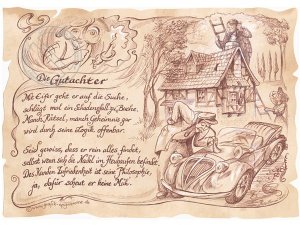 Der Gutachter
Mit Eifer geht er auf die Suche,
schlägt mal ein Schadensfall zu Buche.
Manch Rätsel, manch Geheimnis gar
wird durch seine Logik offenbar.
Seid gewiss, dass er rein alles findet,
selbst wenn sich die Nadel im Heuhaufen befindet.
Des Kunden Zufriedenheit ist seine Philosophie,
ja, dafür scheut er keine Müh.